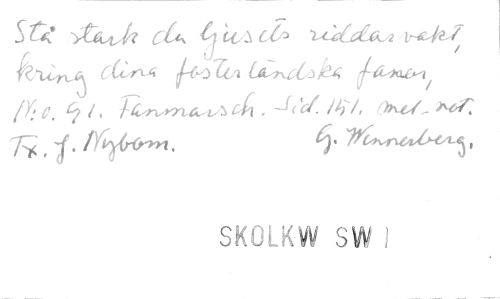 Stå stark du ljusets riddarvakt,
kring dina fosterländska fanor,
N:o. 91. Fanmarsch. Sid. 151. mel-not.
Tx. J. Nybom. G. Wennerberg.
SKOLKW SW 1